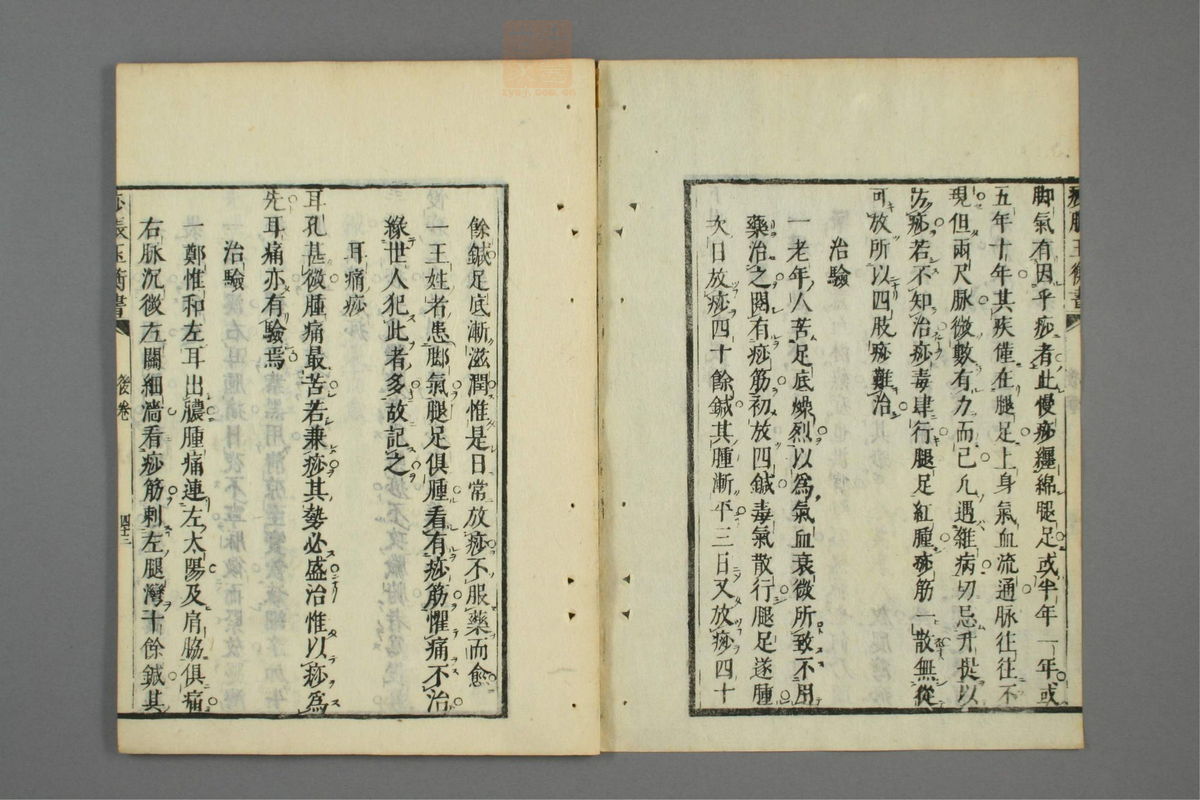 脚氣有因乎痧者此慢痧纏綿腿足或半年一年或
五年十年其疾僅在腿足上身氣血流通脉往往不
現但兩尺脉微數有力而已凡遇雜病切忌升提以
防痧若不知治痧毒肆行腿足紅腫痧筋一散無從
可放所以四肢痧難治
治驗
一老年人苦足底燥烈以為氣血衰微所致不用
藥治之閱有痧筋初放四鍼毒氣散行腿足遂腫
次日放痧四十餘鍼其腫漸平三日又放痧四十
餘鍼足底漸滋潤惟是日常放痧不服藥而愈
一王姓者患脚氣腿足俱腫看有痧筋懼痛不治
緣世人犯此者多故記之
耳痛痧
耳孔甚微腫痛最苦若兼痧其勢必盛治惟以痧為
先耳痛亦有驗焉
治驗
鄭惟和左耳出膿腫痛連左太陽及肩脇俱痛
右脉沉微左關細濇看痧筋刺左腿灣十餘鍼其
痧脹玉衡書
後卷
四十三